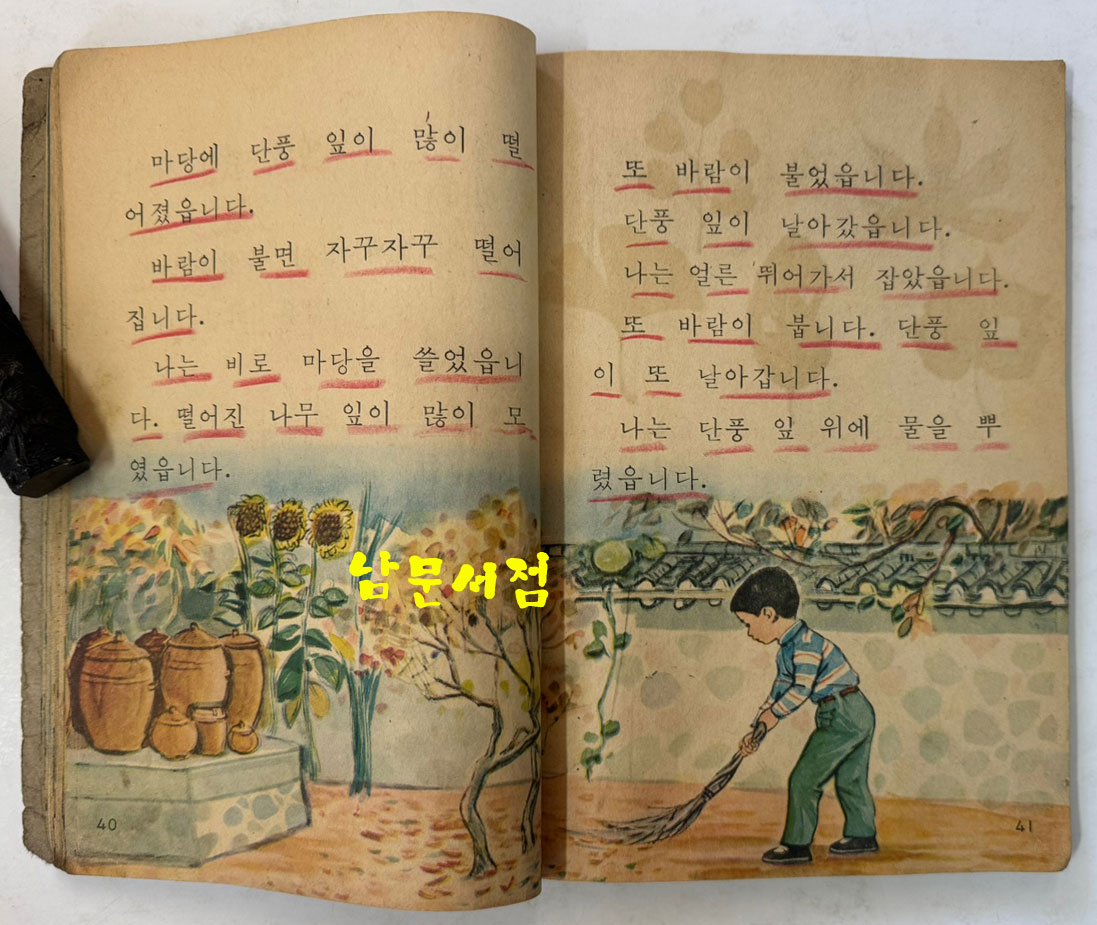 마당에 단풍 잎이 많이 떨
어졌읍니다.
바람이 불면 자꾸자꾸 떨어
집니다.
나는 비로 마당을 쓸었읍니
다. 떨어진 나무 잎이 많이 모
였읍니다.
40
또 바람이 불었읍니다.
단풍 잎이 날아갔읍니다.
나는 얼른 뛰어가서 잡았읍니다.
또 바람이 붑니다. 단풍 잎
이 또 날아갑니다.
나는 단풍 잎 위에 물을 뿌
렸읍니다.
41
남문서점